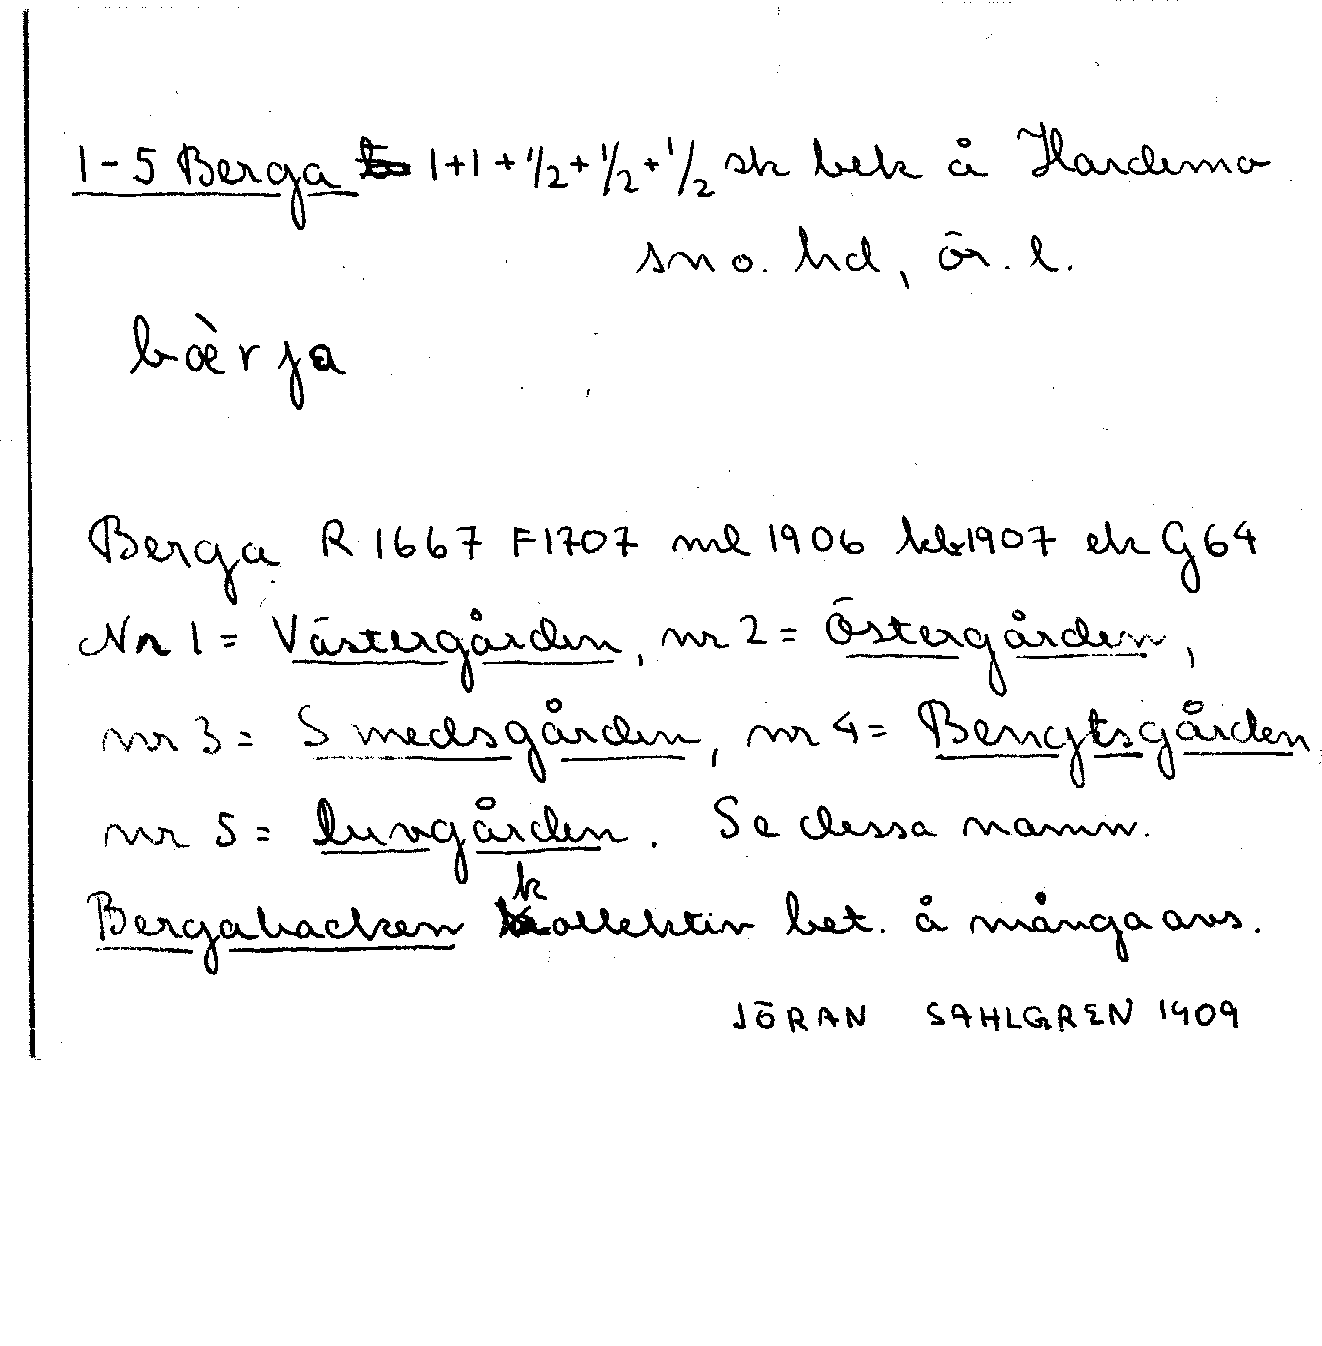 1-5 Berga 1+1+1/2+1/2+1/2 sk bek å Hardemo
sn o. hd, ör. l.
bærja
Berga R 1667 F1707 ml 1906 kb1907 ek G64
Nr 1 = Västergården, nr 2 = Östergården,
nr 3 = Smedsgården, nr 4 = Bengtsgården
nr 5 = luvgården. Se dessa namn.
Bergabacken kollektiv bet. å många avs.
JÖRAN SAHLGREN 1909